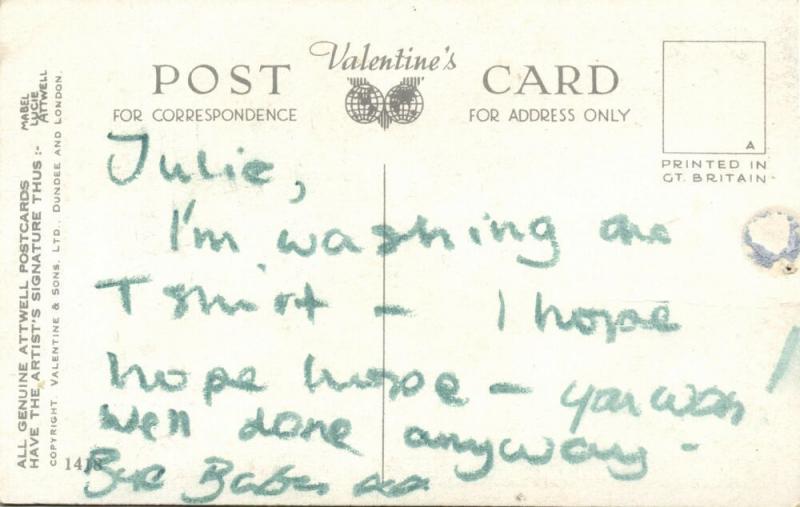 Valentine's
POST CARD
FOR CORRESPONDENCE
FOR ADDRESS ONLY
A
PRINTED IN
GT. BRITAIN
ALL GENUINE ATTWELL POSTCARDS
HAVE THE ARTIST'S SIGNATURE THUS :-
MABEL
LUCIE
ATTWELL
COPYRIGHT. VALENTINE & SONS, LTD., DUNDEE AND LONDON.
Julie,
I'm washing the
T shirt - I hope
hope hope - you won!
well done anyway -
Bye Babes